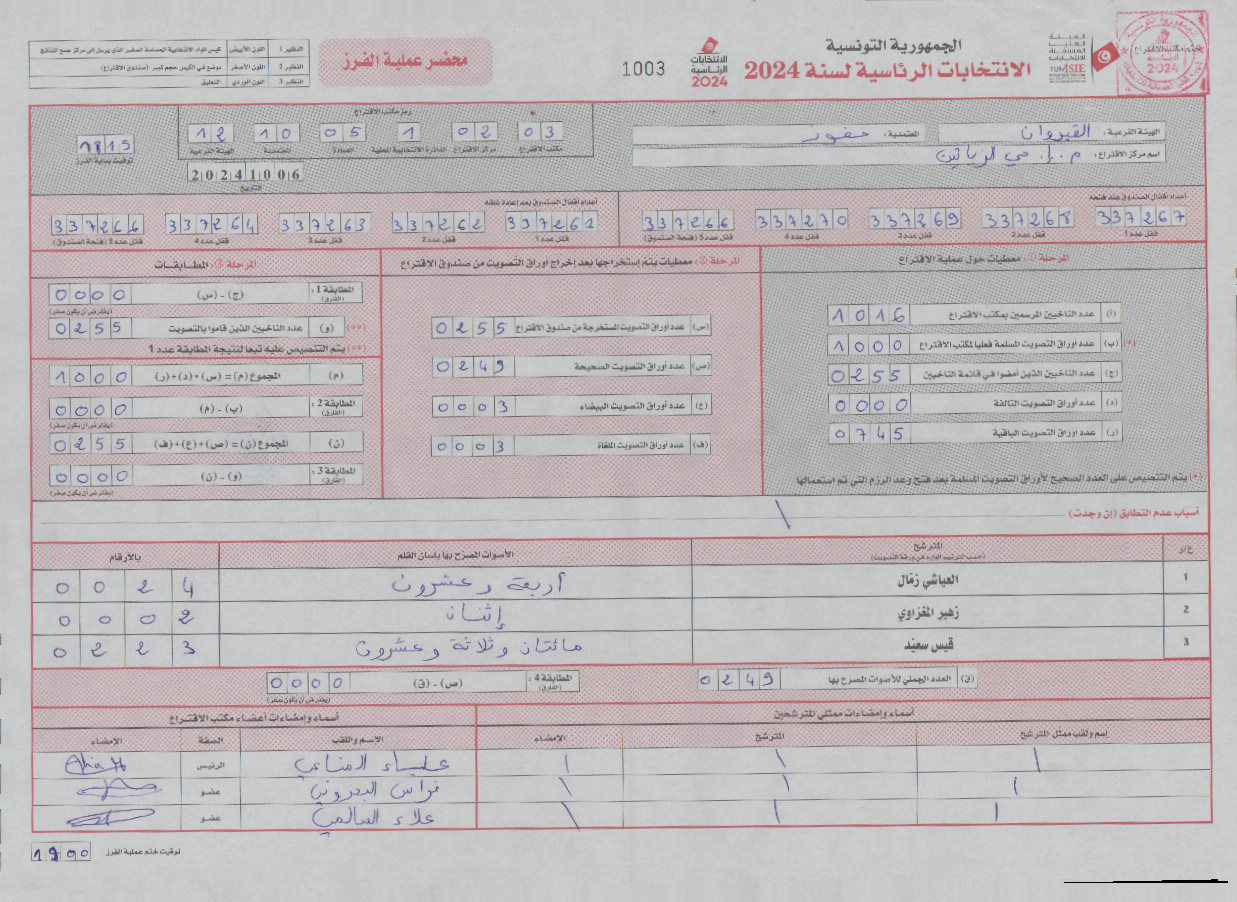 الجمهورية التونسية
الانتخابات الرئاسية لسنة 2024
الهيئة العليا المستقلة للانتخابات
TUNISIE
الانتخابات الرئاسية 2024
1003
محضر عملية الفرز
النظير 1 اللون الأبيض كيس المواد الانتخابية الحساسة الصغير الذي يرسل إلى مركز جمع النتائج
النظير 2 اللون الأصفر توضع في الكيس حجم كبير (صندوق الاقتراع)
النظير 3 اللون الوردي التعليق
ختم مكتب الاقتراع
الهيئة الفرعية : القيروان المعتمدية : حفوز
اسم مركز الاقتراع : م. إ. حي الرياتين
رمز مكتب الاقتراع
03 02 1 05 10 12
مكتب الاقتراع مركز الاقتراع الدائرة الانتخابية المحلية العمادة المعتمدية الهيئة الفرعية
1815
توقيت بداية الفرز
20241006
التاريخ
أعداد أقفال الصندوق عند فتحه
337267 337268 337269 337270 337266
قفل عدد 1 قفل عدد 2 قفل عدد 3 قفل عدد 4 قفل عدد 5 (فتحة الصندوق)
أعداد أقفال الصندوق بعد إعادة غلقه
337261 337262 337263 337264 337266
قفل عدد 1 قفل عدد 2 قفل عدد 3 قفل عدد 4 قفل عدد 5 (فتحة الصندوق)
المرحلة 1 : معطيات حول عملية الاقتراع
(أ) عدد الناخبين المرسمين بمكتب الاقتراع 1016
(*) (ب) عدد أوراق التصويت المسلمة فعليا لمكتب الاقتراع 1000
(ج) عدد الناخبين الذين أمضوا في قائمة الناخبين 0255
(د) عدد أوراق التصويت التالفة 0000
(ر) عدد أوراق التصويت الباقية 0745
(*) يتم التنصيص على العدد الصحيح لأوراق التصويت المسلمة بعد فتح وعد الرزم التي تم استعمالها
المرحلة 2 : معطيات يتم إستخراجها بعد إخراج أوراق التصويت من صندوق الاقتراع
(س) عدد أوراق التصويت المستخرجة من صندوق الاقتراع 0255
(ص) عدد أوراق التصويت الصحيحة 0249
(ع) عدد أوراق التصويت البيضاء 0003
(ف) عدد أوراق التصويت الملغاة 0003
المرحلة 3 : المطابقات
المطابقة 1 : (الفارق) (ج) - (س) 0000
(يفترض أن يكون صفر)
(**) (و) عدد الناخبين الذين قاموا بالتصويت 0255
(**) يتم التنصيص عليه تبعا لنتيجة المطابقة عدد 1
(م) المجموع (م) = (س)+(د)+(ر) 1000
المطابقة 2 : (الفارق) (ب) - (م) 0000
(يفترض أن يكون صفر)
(ن) المجموع (ن) = (ص)+(ع)+(ف) 0255
المطابقة 3 : (الفارق) (و) - (ن) 0000
(يفترض أن يكون صفر)
أسباب عدم التطابق (إن وجدت)
ع/ر المترشح الأصوات المصرح بها بلسان القلم بالأرقام
(حسب الترتيب الوارد في ورقة التصويت)
1 العياشي زمّال أربعة وعشرون 0024
2 زهير المغزاوي إثنان 0002
3 قيس سعيّد مائتان وثلاثة وعشرون 0223
(ق) العدد الجملي للأصوات المصرح بها 0249
المطابقة 4 : (الفارق) (ص) - (ق) 0000
(يفترض أن يكون صفر)
أسماء وإمضاءات ممثلي المترشحين
إسم ولقب ممثل المترشح المترشح الإمضاء
أسماء وإمضاءات أعضاء مكتب الاقتراع
الاسم واللقب الصفة الإمضاء
علياء المناعي الرئيس
فراس البعروني عضو
علاء السالمي عضو
توقيت ختم عملية الفرز 1900